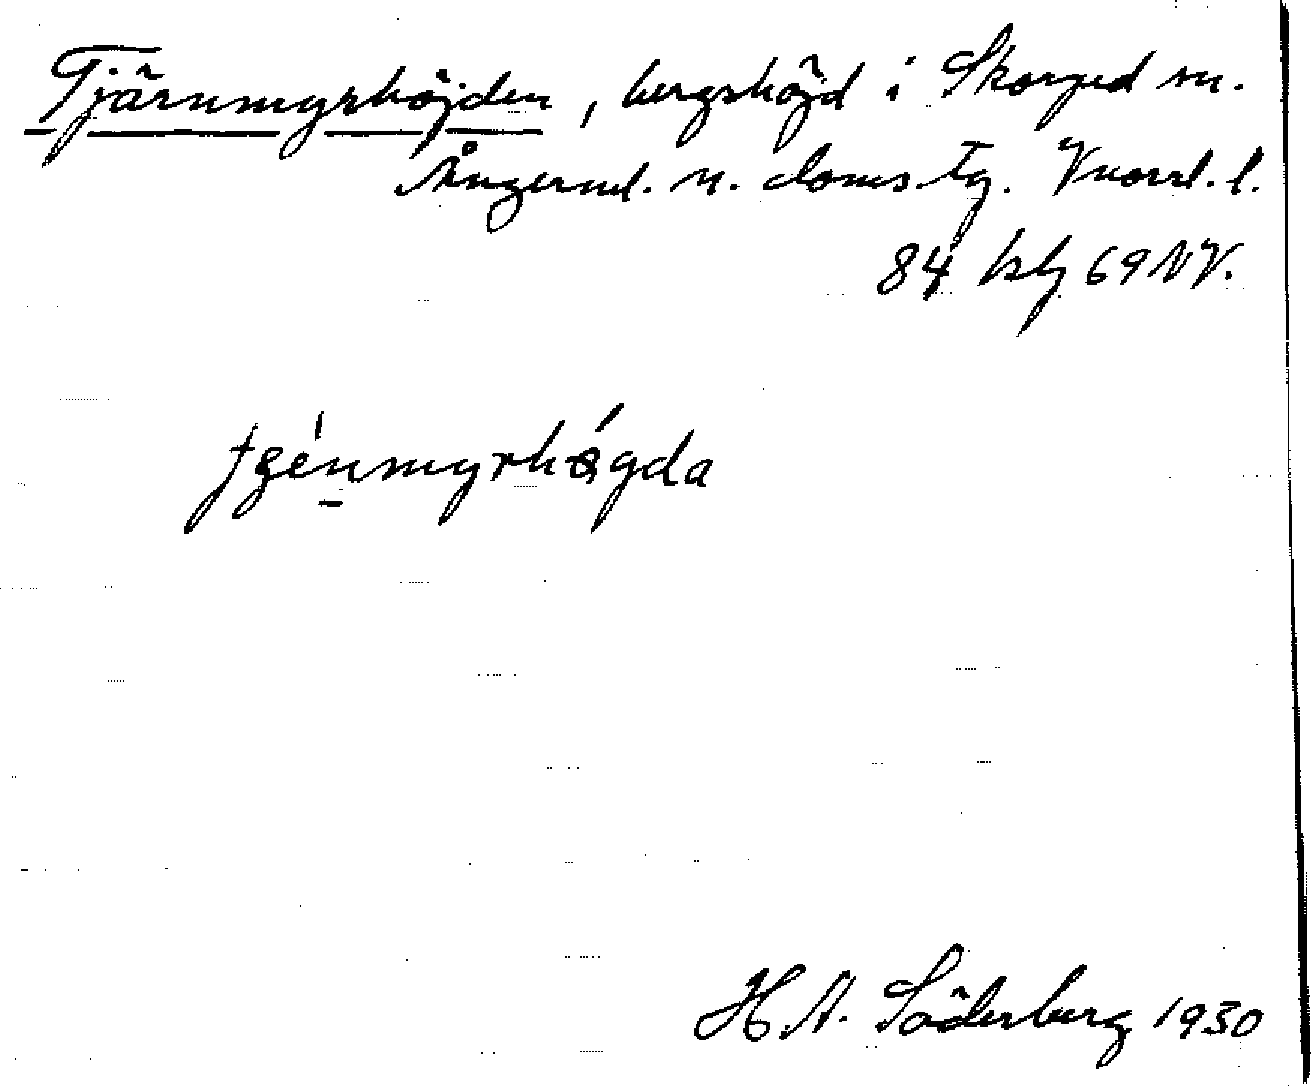 Tjärnmyrhöjden, bergshöjd i Skorped sn.
Ångerml. n. doms.tg. Vnorrl. l.
84 blg 69 NV.
H.A. Söderberg 1930